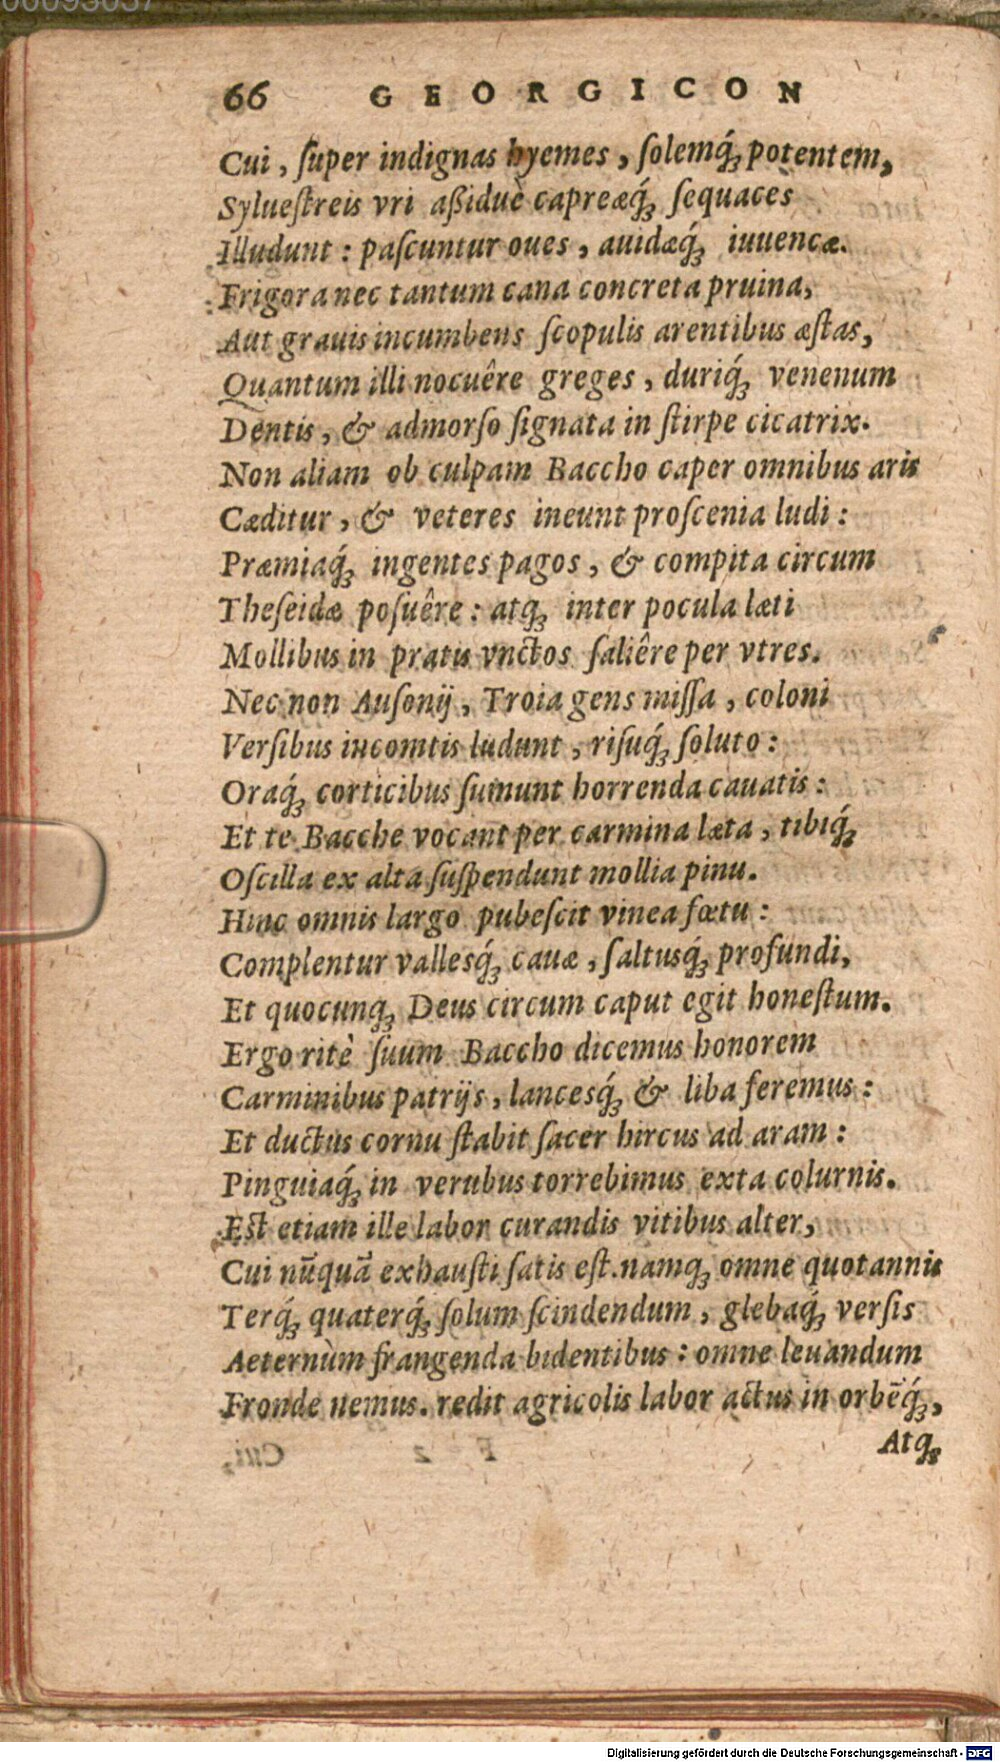 66 GEORGICON
Cui, ſuper indignas hyemes, ſolemq́; potentem,
Sylueſtreis vri aßiduè capreæq́; ſequaces
Illudunt: paſcuntur oues, auidæq́; iuuencæ.
Frigora nec tantum cana concreta pruina,
Aut grauis incumbens ſcopulis arentibus æſtas,
Quantum illi nocuêre greges, duriq́; venenum
Dentis, & admorſo ſignata in ſtirpe cicatrix.
Non aliam ob culpam Baccho caper omnibus aris
Cæditur, & veteres ineunt proſcenia ludi:
Præmiaq́; ingentes pagos, & compita circum
Theſeidæ poſuêre: atq; inter pocula læti
Mollibus in pratis vnctos ſaliêre per vtres.
Nec non Auſonij, Troia gens miſſa, coloni
Verſibus incomtis ludunt, riſuq́; ſoluto:
Oraq́; corticibus ſumunt horrenda cauatis:
Et te Bacche vocant per carmina læta, tibiq́;
Oſcilla ex alta ſuſpendunt mollia pinu.
Hinc omnis largo pubeſcit vinea fœtu:
Complentur vallesq́; cauæ, ſaltusq́; profundi,
Et quocunq; Deus circum caput egit honeſtum.
Ergo ritè ſuum Baccho dicemus honorem
Carminibus patrijs, lancesq́; & liba feremus:
Et ductus cornu ſtabit ſacer hircus ad aram:
Pinguiaq́; in verubus torrebimus exta colurnis.
Eſt etiam ille labor curandis vitibus alter,
Cui nũquã exhauſti ſatis eſt. namq; omne quotannis
Terq́; quaterq́; ſolum ſcindendum, glebaq́; verſis
Aeternùm frangenda bidentibus: omne leuandum
Fronde nemus. redit agricolis labor actus in orbẽq́;,
Atq;
Digitalisierung gefördert durch die Deutsche Forschungsgemeinschaft - DFG